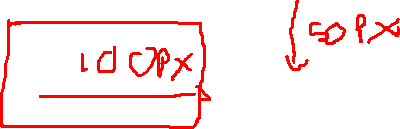 100px
50px